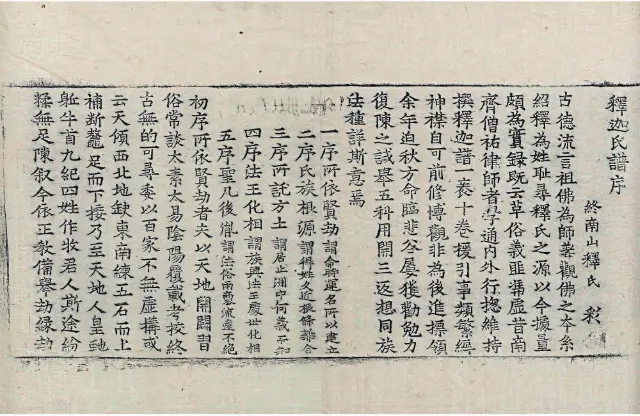 釋迦氏譜序
終南山釋氏
古德流言祖佛為師羕觀佛之本系
紹釋為姓耻尋釋氏之源以今據量
頗為實録既云革俗義匪憑虛昔南
齊僧祐律師者學通内外行揔維持
撰釋迦譜一袠十卷援引事類繁縟
神襟自可前修博觀非為後進標領
余年迫秋方命臨悲谷屢獲勸勉力
復陳之誠舉五科用開三返想同族
法種詳斯意焉
一序所依賢劫謂命歸運名所以建立
二序氏族根源謂得姓久近根條離合
三序所託方土謂居止洲中何義
四序法王化相謂族興法王處世化相
五序聖凡後胤謂法俗兩胤流遠不絕
初序所依賢劫者夫以天地開闢習
俗常談太素太易陰陽覆載考挍終
古無的可尋委以百家不無虛構或
云天傾西北地缺東南練五石而上
補断鼇足而下乃至天地人皇虵
躯牛首九紀四姓作牧君人斯途紛
糅無足陳叙今依正教備舉劫緣劫